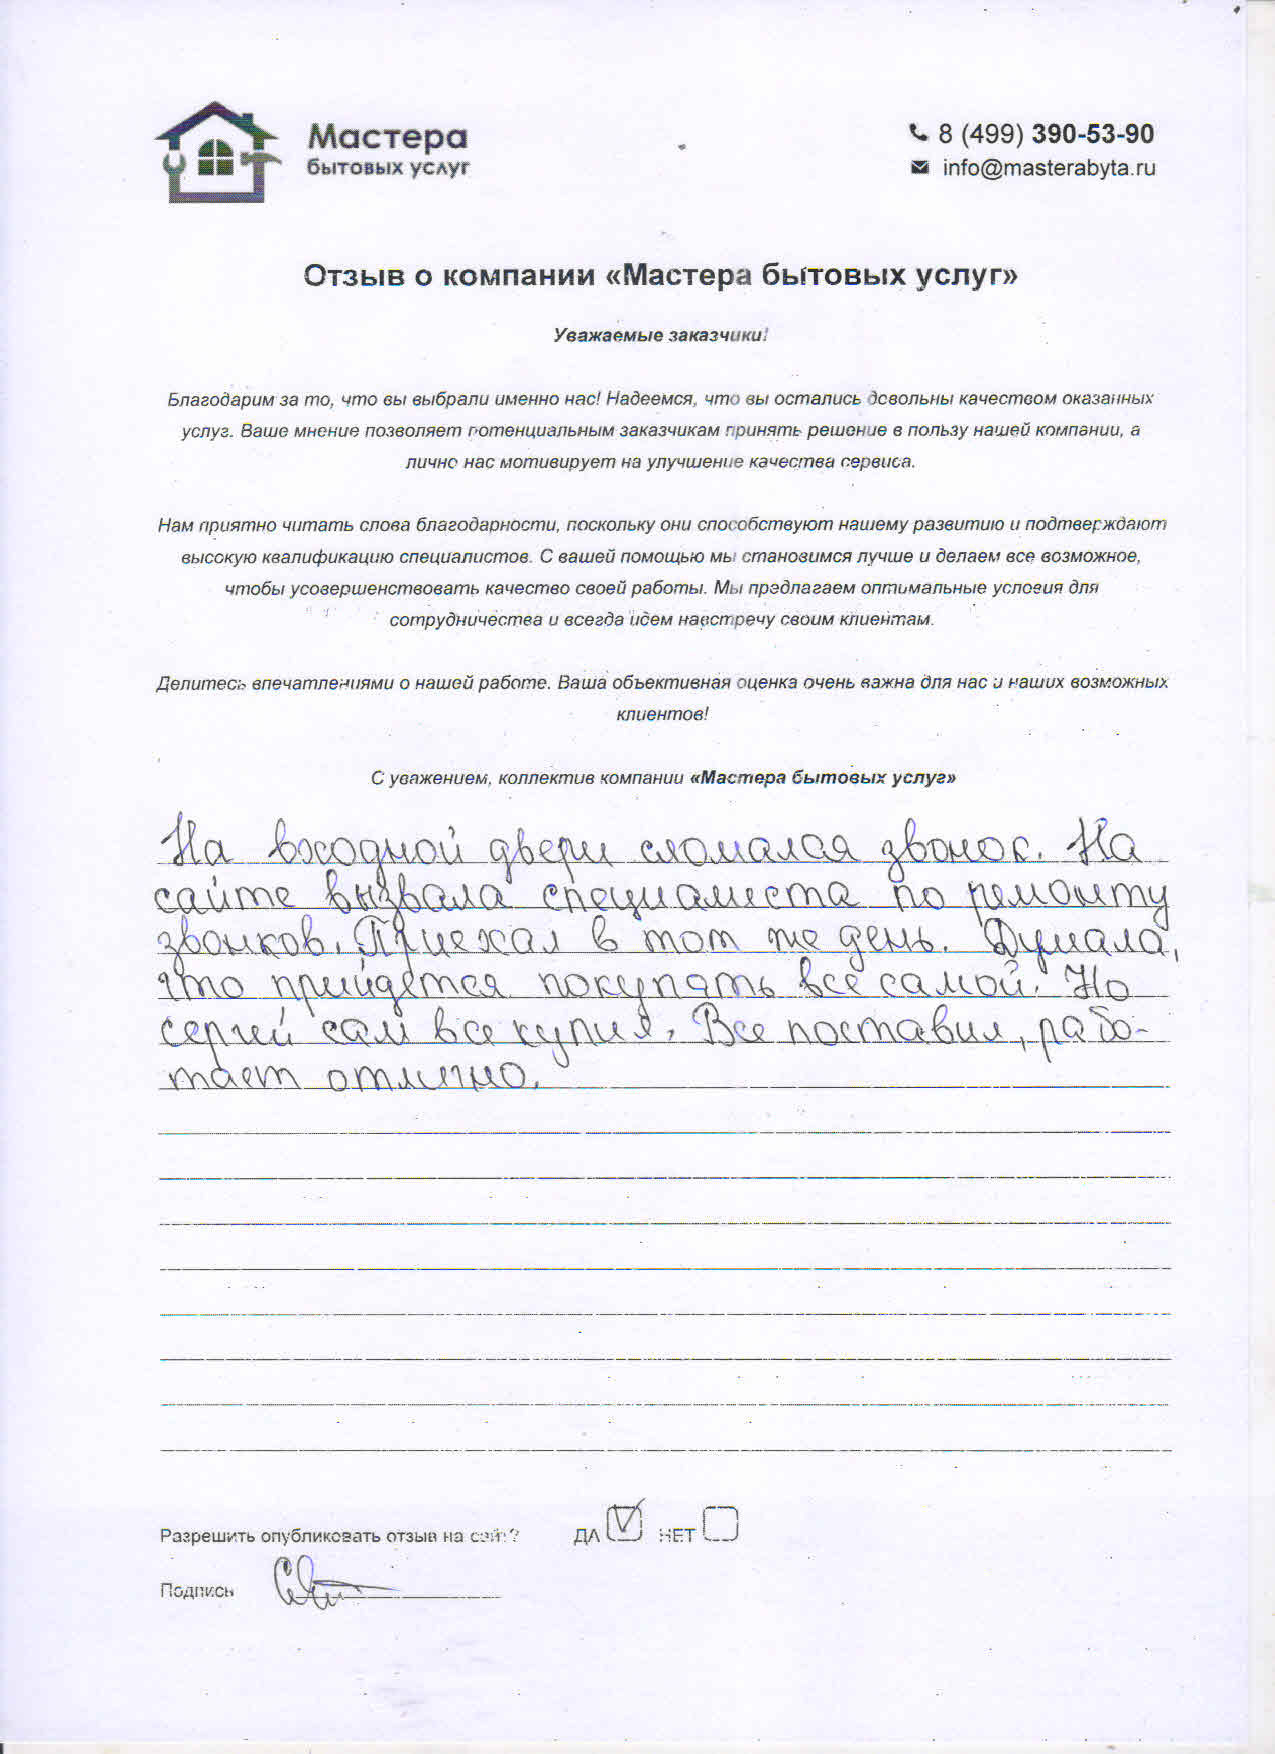 Мастера
бытовых услуг
8 (499) 390-53-90
info@masterabyta.ru
Отзыв о компании «Мастера бытовых услуг»
Уважаемые заказчики!
Благодарим за то, что вы выбрали именно нас! Надеемся, что вы остались довольны качеством оказанных
услуг. Ваше мнение позволяет потенциальным заказчикам принять решение в пользу нашей компании, а
лично нас мотивирует на улучшение качества сервиса.
Нам приятно читать слова благодарности, поскольку они способствуют нашему развитию и подтверждают
высокую квалификацию специалистов. С вашей помощью мы становимся лучше и делаем все возможное,
чтобы усовершенствовать качество своей работы. Мы предлагаем оптимальные условия для
сотрудничества и всегда идем навстречу своим клиентам.
Делитесь впечатлениями о нашей работе. Ваша объективная оценка очень важна для нас и наших возможных
клиентов!
С уважением, коллектив компании «Мастера бытовых услуг»
На входной двери сломался звонок. На
сайте вызвала специалиста по ремонту
звонков. Приехал в тот же день. Думала,
что прийдется покупать все самой. Но
сергей сам все купил. Все поставил, рабо-
тает отлично.
Разрешить опубликовать отзыв на сайт? ДА НЕТ
Подпись